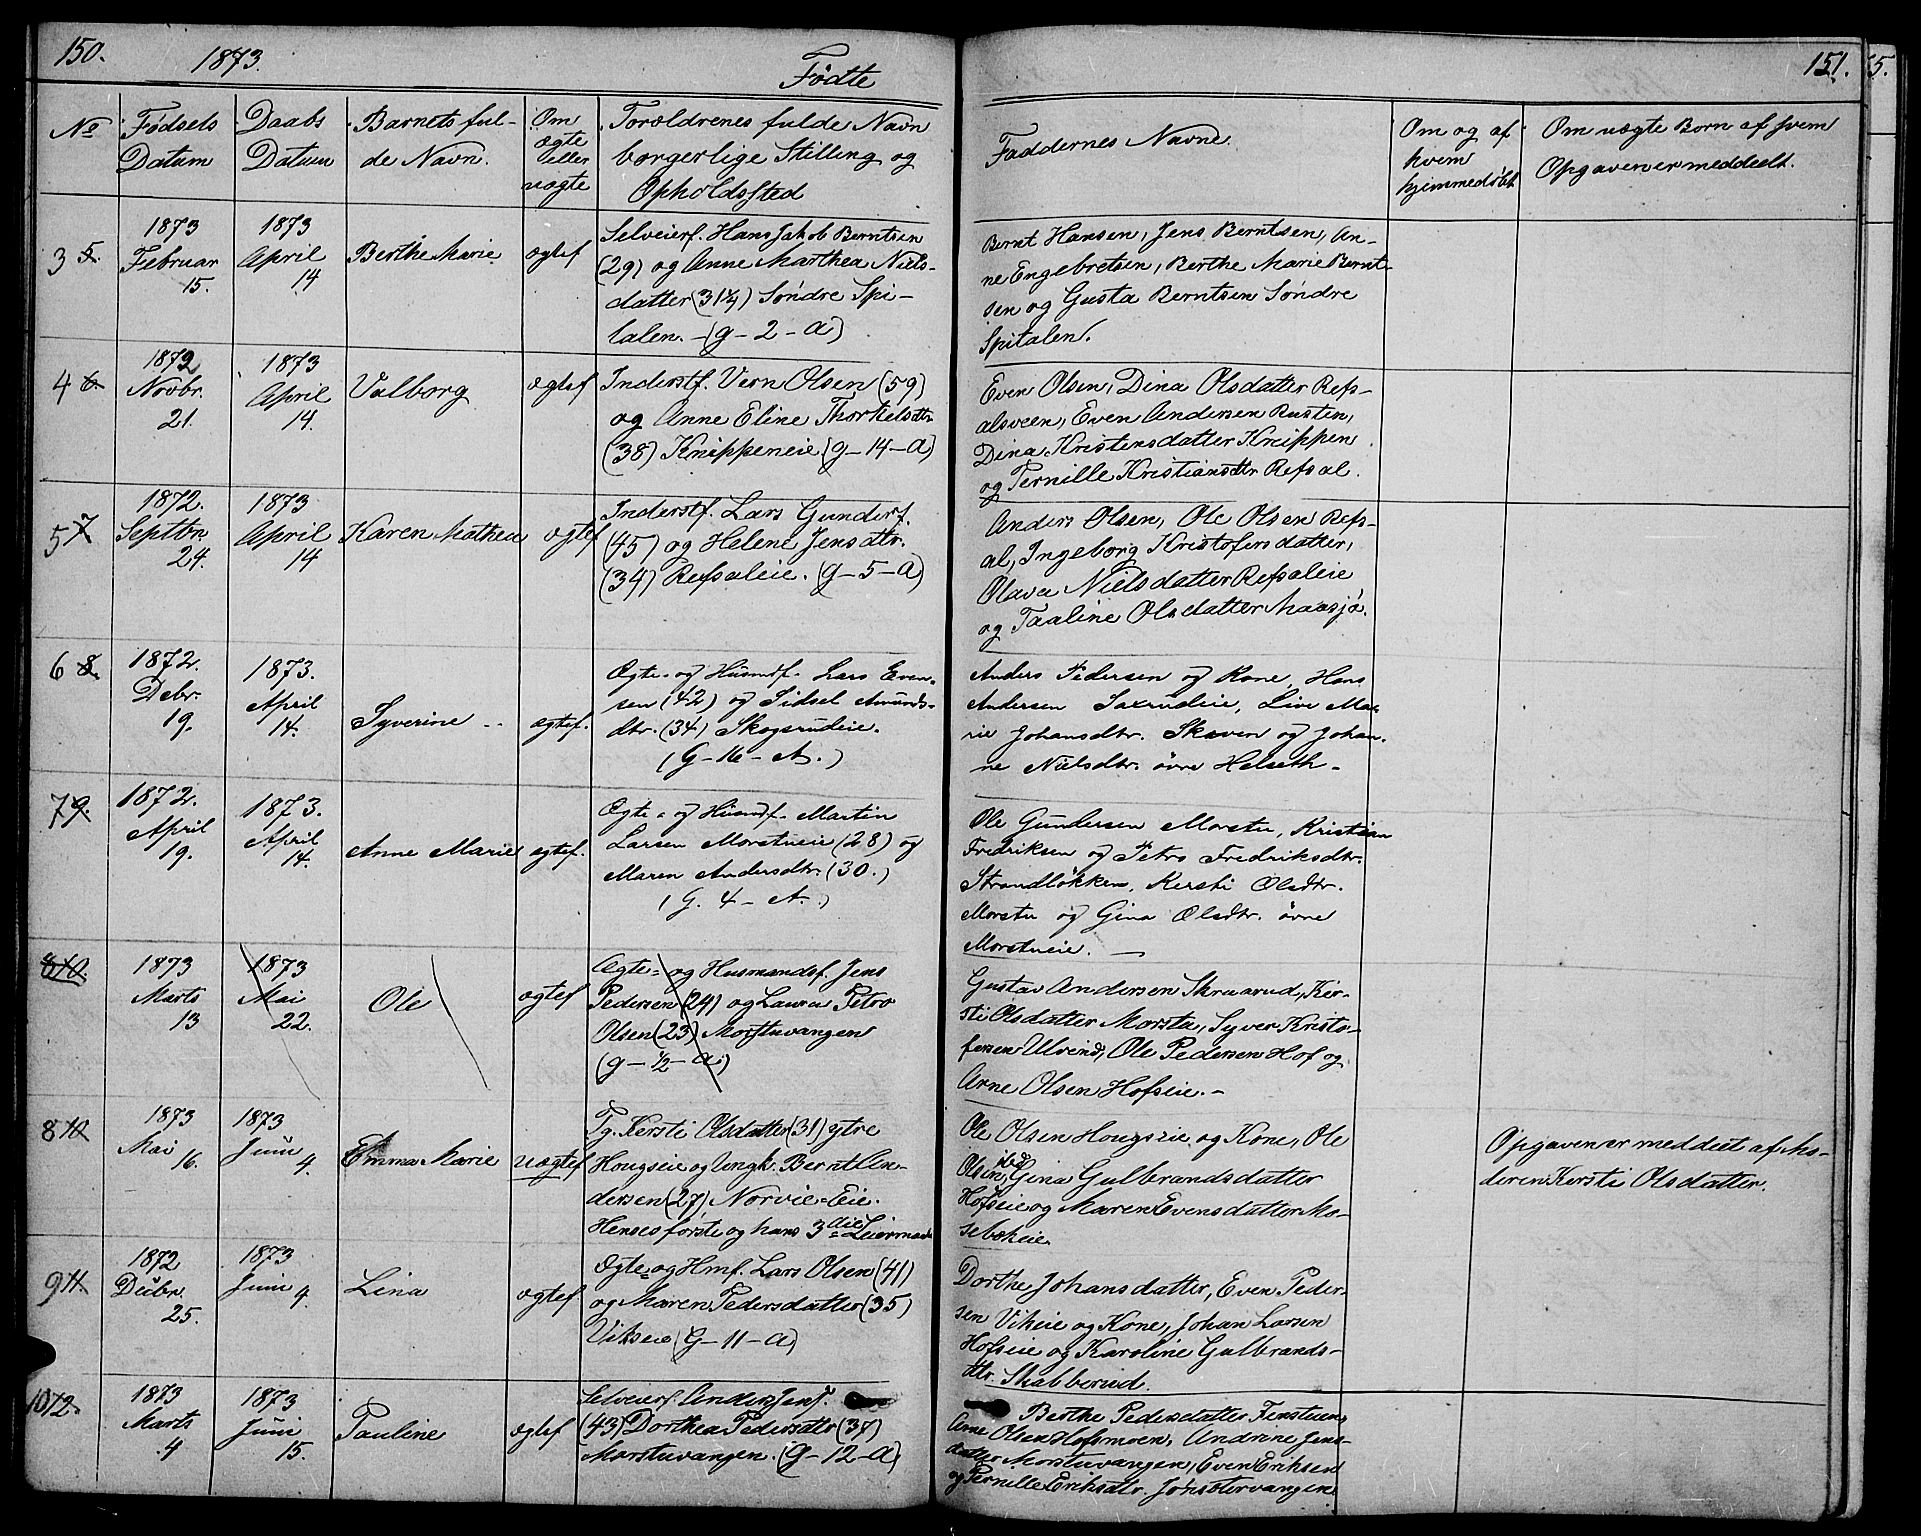 150.
1873.
Fødte
151.
5.
No
Fødsels
Datum
Daabs
Datum
Barnets ful-
de Navn.
Om
ægte
eller
uægte
Forældrenes fulde Navn
borgerlige Stilling og
Opholdssted
Faddernes Navne.
Om og af
hvem
hjemmedøbt
Om uægte Børn af hvem
Opgaven er meddeelt.
3 5.
1873
Februar
15.
1873
April
14
Berthe Marie
ægtef
Selveierf. Hans Jakob Berntsen
(29) og Anne Marthea Niels-
datter (31¼) Søndre Spi-
talen. - (g - 2 - a)
Bernt Hansen, Jens Berntsen, An-
ne Engebretsen, Berthe Marie Bernt-
sen og Gusta Berntsen Søndre
Spitalen.
4 6.
1872
Novbr.
21.
1873
April
14.
Valborg
ægtef
Inderstf. Vern Olsen (59)
og Anne Eline Thorkelsdtr
(38) Knippeneie (g - 14 - a)
Even Olsen, Dina Olsdatter Refs-
alsveen, Even Andersen Rusten,
Dina Kristensdatter Knippen
og Pernille Kristiansdtr Refsal.
5 7
1872.
Septbr.
24.
1873
April
14
Karen Mathea
ægtef
Inderstf. Lars Gunders.
(45) og Helene Jensdtr.
(34) Refsaleie. (g - 5 - a)
Anders Olsen, Ole Olsen Refs-
al, Ingeborg Kristofersdatter,
Olava Nielsdatter Refsaleie
og Taaline Olsdatter Maasjø.
6 8.
1872.
Debr.
19.
1873.
April
14.
Syverine
ægtef.
Ægte- og Husmdf. Lars Even-
sen (42) og Sidsel Amunds-
dtr. (34) Skogsrudeie.
(G - 16 - A.)
Anders Pedersen og Kone, Hans
Andersen Saxrudeie, Live Ma-
rie Johansdtr. Skaven og Johan-
ne Nielsdtr. øvre Helseth -
7 9.
1872.
April
19.
1873.
April
14.
Anne Marie
egtef.
Ægte- og Husmdf. Martin
Larsen Morstueie (28) og
Maren Andersdtr. (30.)
(G. 4 - A.)
Ole Gundersen Morstu, Kristian
Fredriksen og Petra Fredriksdtr.
Strandløkken, Kersti Olsdtr.
Morstu og Gina Olsdtr. øvre
Morstueie. -
8 10.
1873
Marts
13
1873
Mai
22.
Ole
ægtef
Ægte- og Husmandsf. Jens
Pedersen (24) og Laura Petra
Olsen (23) Morstuvangen
(g - ½ - a)
Gustav Andersen Skraarud, Ker-
sti Olsdatter Morsta, Syver Kristo-
fersen Ulvind, Ole Pedersen Hof og
Arne Olsen Hofseie. -
8 10
1873
Mai
16.
1873
Juni
4.
Emma Marie
uægtef
Pg. Kersti Olsdatter (31) ytre
Hougseie og Ungk. Bernt An-
dersen (27) Norvie-Eie.
Hendes første og hans 3die Leiermaal
Ole Olsen Hougseie og Kone, Ole
Olsen ibd, Gina Gulbrandsdatter
Hofseie og Maren Evensdatter Mo-
sebekeie.
Opgaven er meddeelt af Mo-
deren Kersti Olsdatter.
9 11.
1872
Debr.
25.
1873
Juni
4.
Lina
ægtef
Ægte- og Hmf. Lars Olsen (41)
og Maren Pedersdatter (35)
Vikseie (G - 11 - a)
Dorthe Johansdatter, Even Peder-
sen Vikeie og Kone, Johan Larsen
Hofseie og Karoline Gulbrands-
dtr. Skabberud.
10 12.
1873
Marts
4
1873
Juni
15.
Pauline
ægtef
Selveierf. Anders Jens.
(43) Dorthea Pedersdtr (37)
Morstuvangen. (G - 12 - a)
Berthe Pedersdatter Finstuen,
Arne Olsen Hofsmoen, Andrine Jens-
datter Morstuvangen, Even Eriksen
og Pernille Eriksdtr.